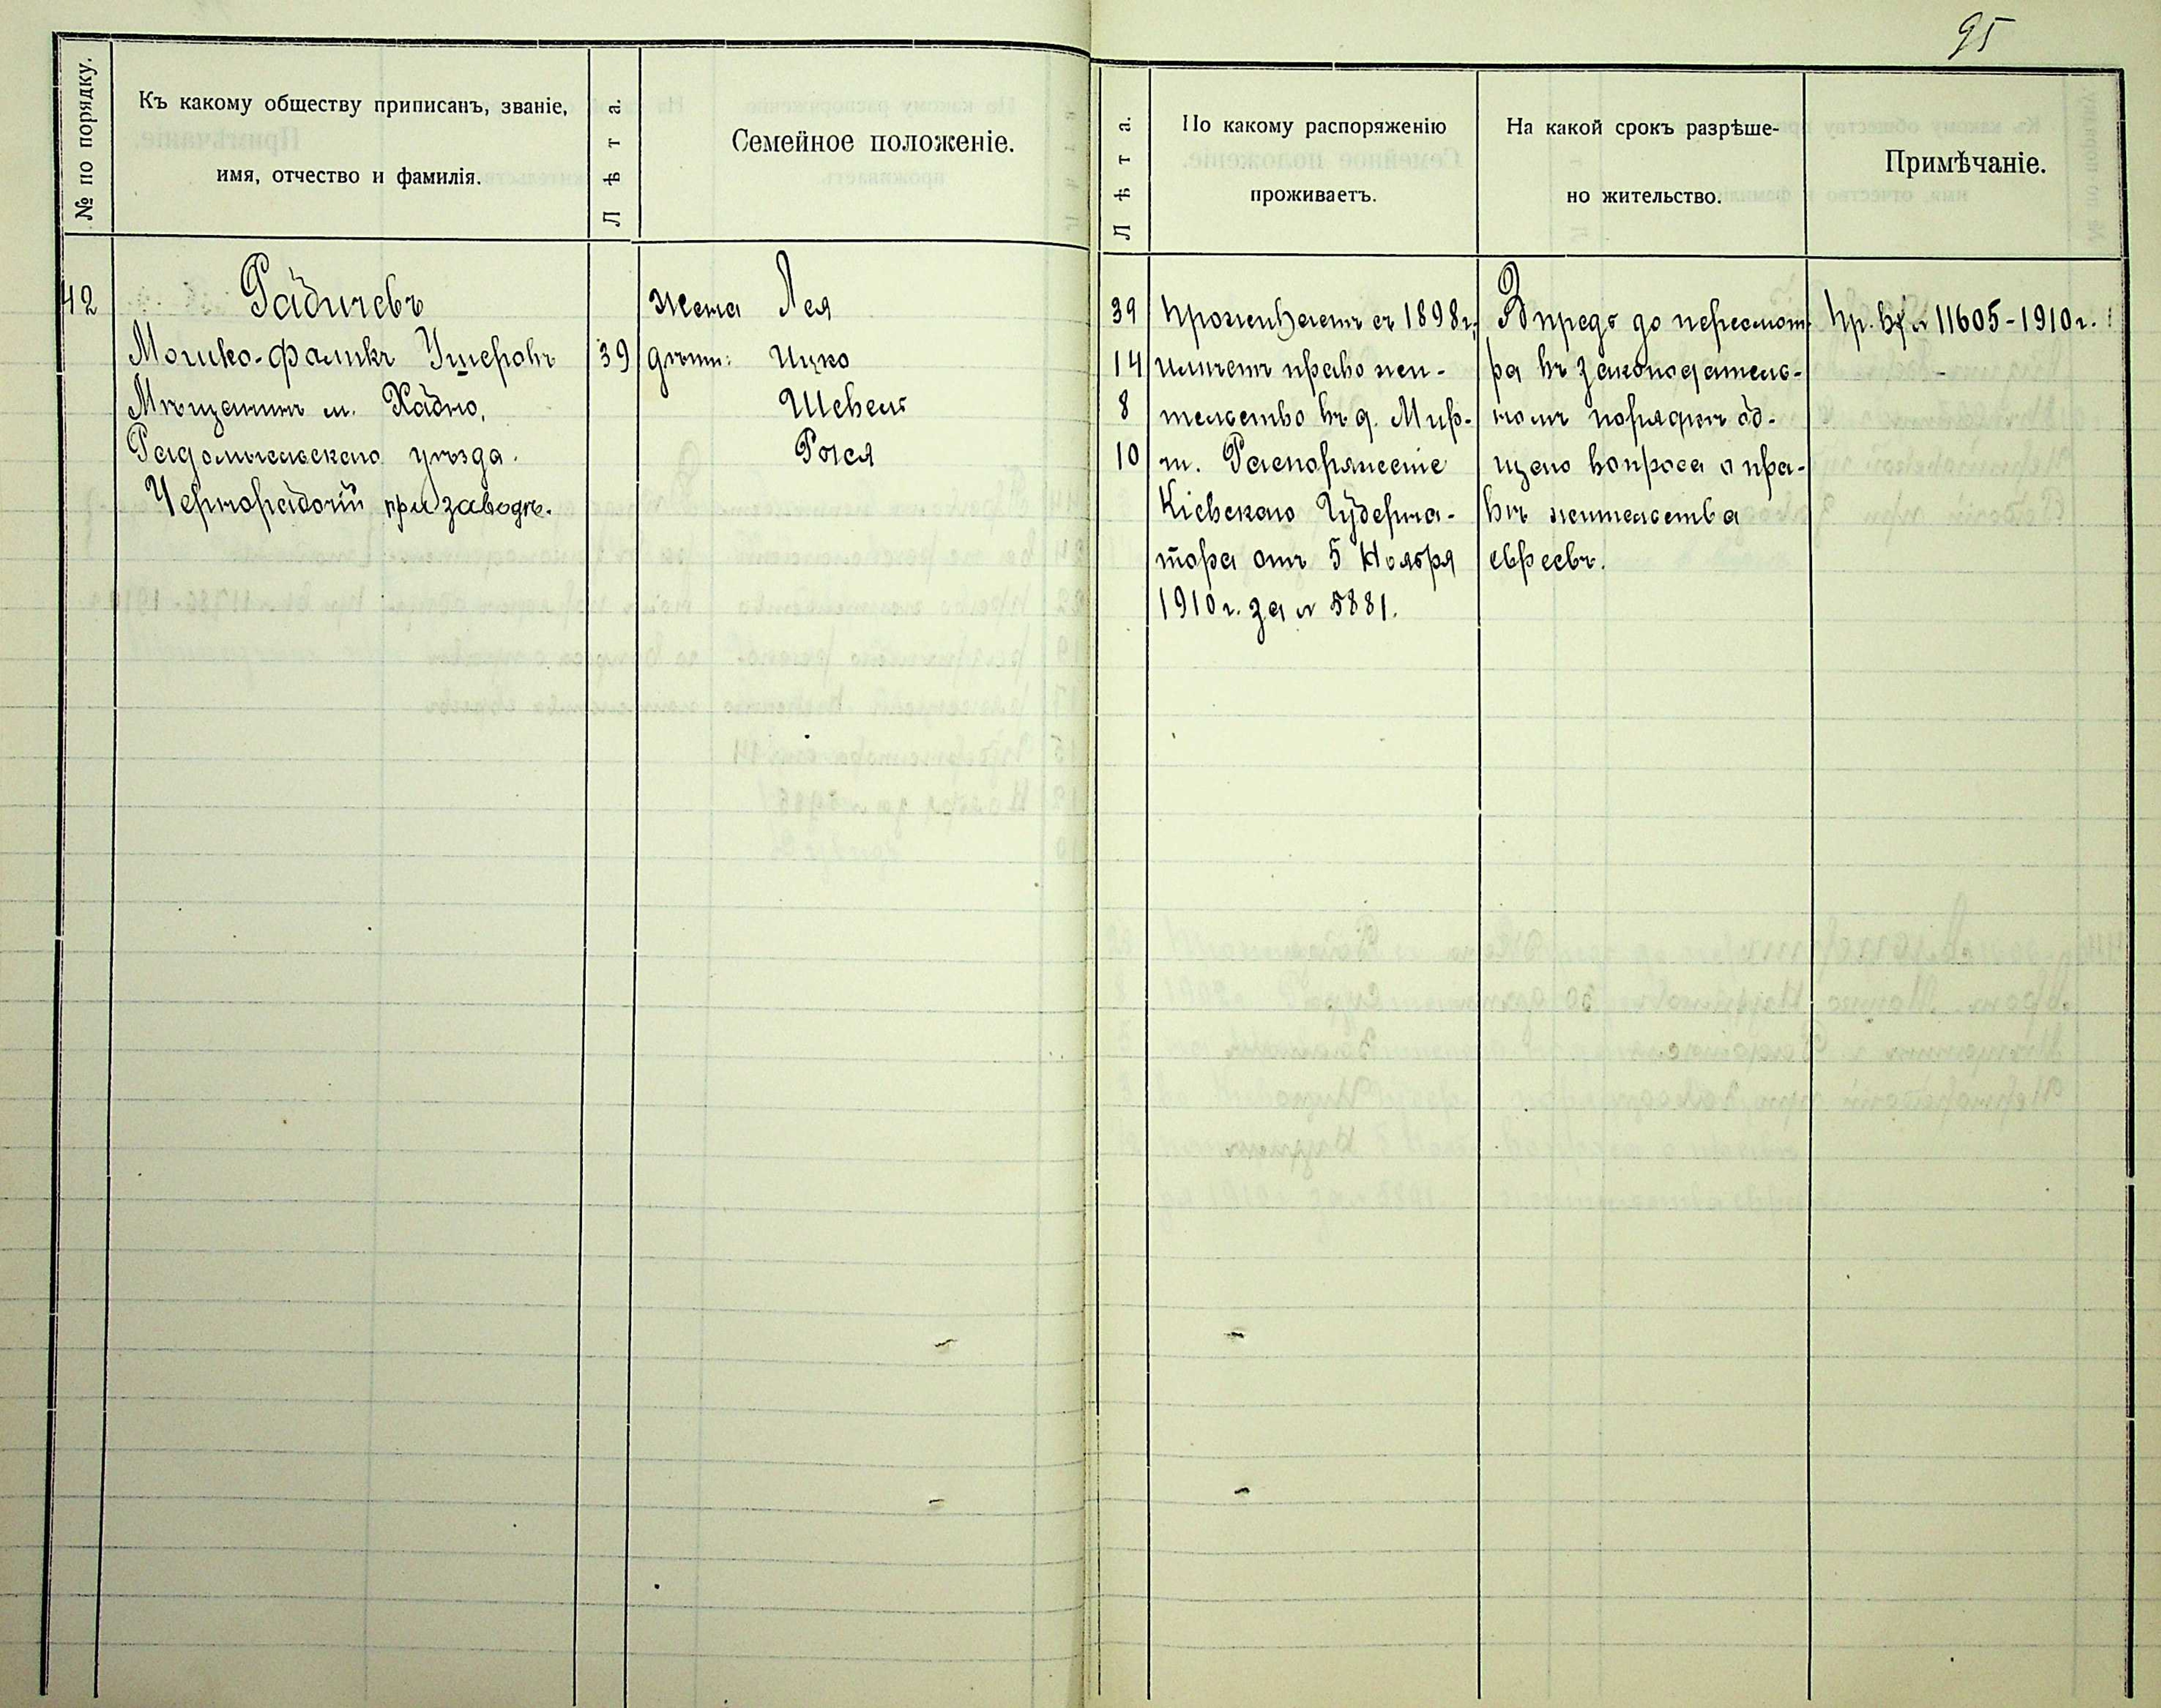 95
№ по порядку.
Къ какому обществу приписанъ, званіе,
имя, отчество и фамилія.
Лѣта.
Семейное положеніе.
Лѣта.
По какому распоряженію
проживаетъ.
На какой срокъ разрѣше-
но жительство.
Примѣчаніе.
42
Рабичевъ
Мошко-Фаликъ Ушеровъ 39
Мѣщанинъ м. Хабно,
Радомысльскаго уѣзда.
Чернорабочій при заводѣ.
жена Лея
дѣти: Ицко
Шевель
Рейся
39
14
8
10
Проживаетъ съ 1898 г.,
имѣетъ право жи-
тельство въ д. Мир-
ч. Распоряженіе
Кіевскаго Губерна-
тора отъ 5 Ноября
1910 г. за № 5881.
Впредь до пересмот-
ра въ законодатель-
номъ порядкѣ об-
щаго вопроса о пра-
вѣ жительства
евреевъ.
пр. вх. № 11605-1910 г.